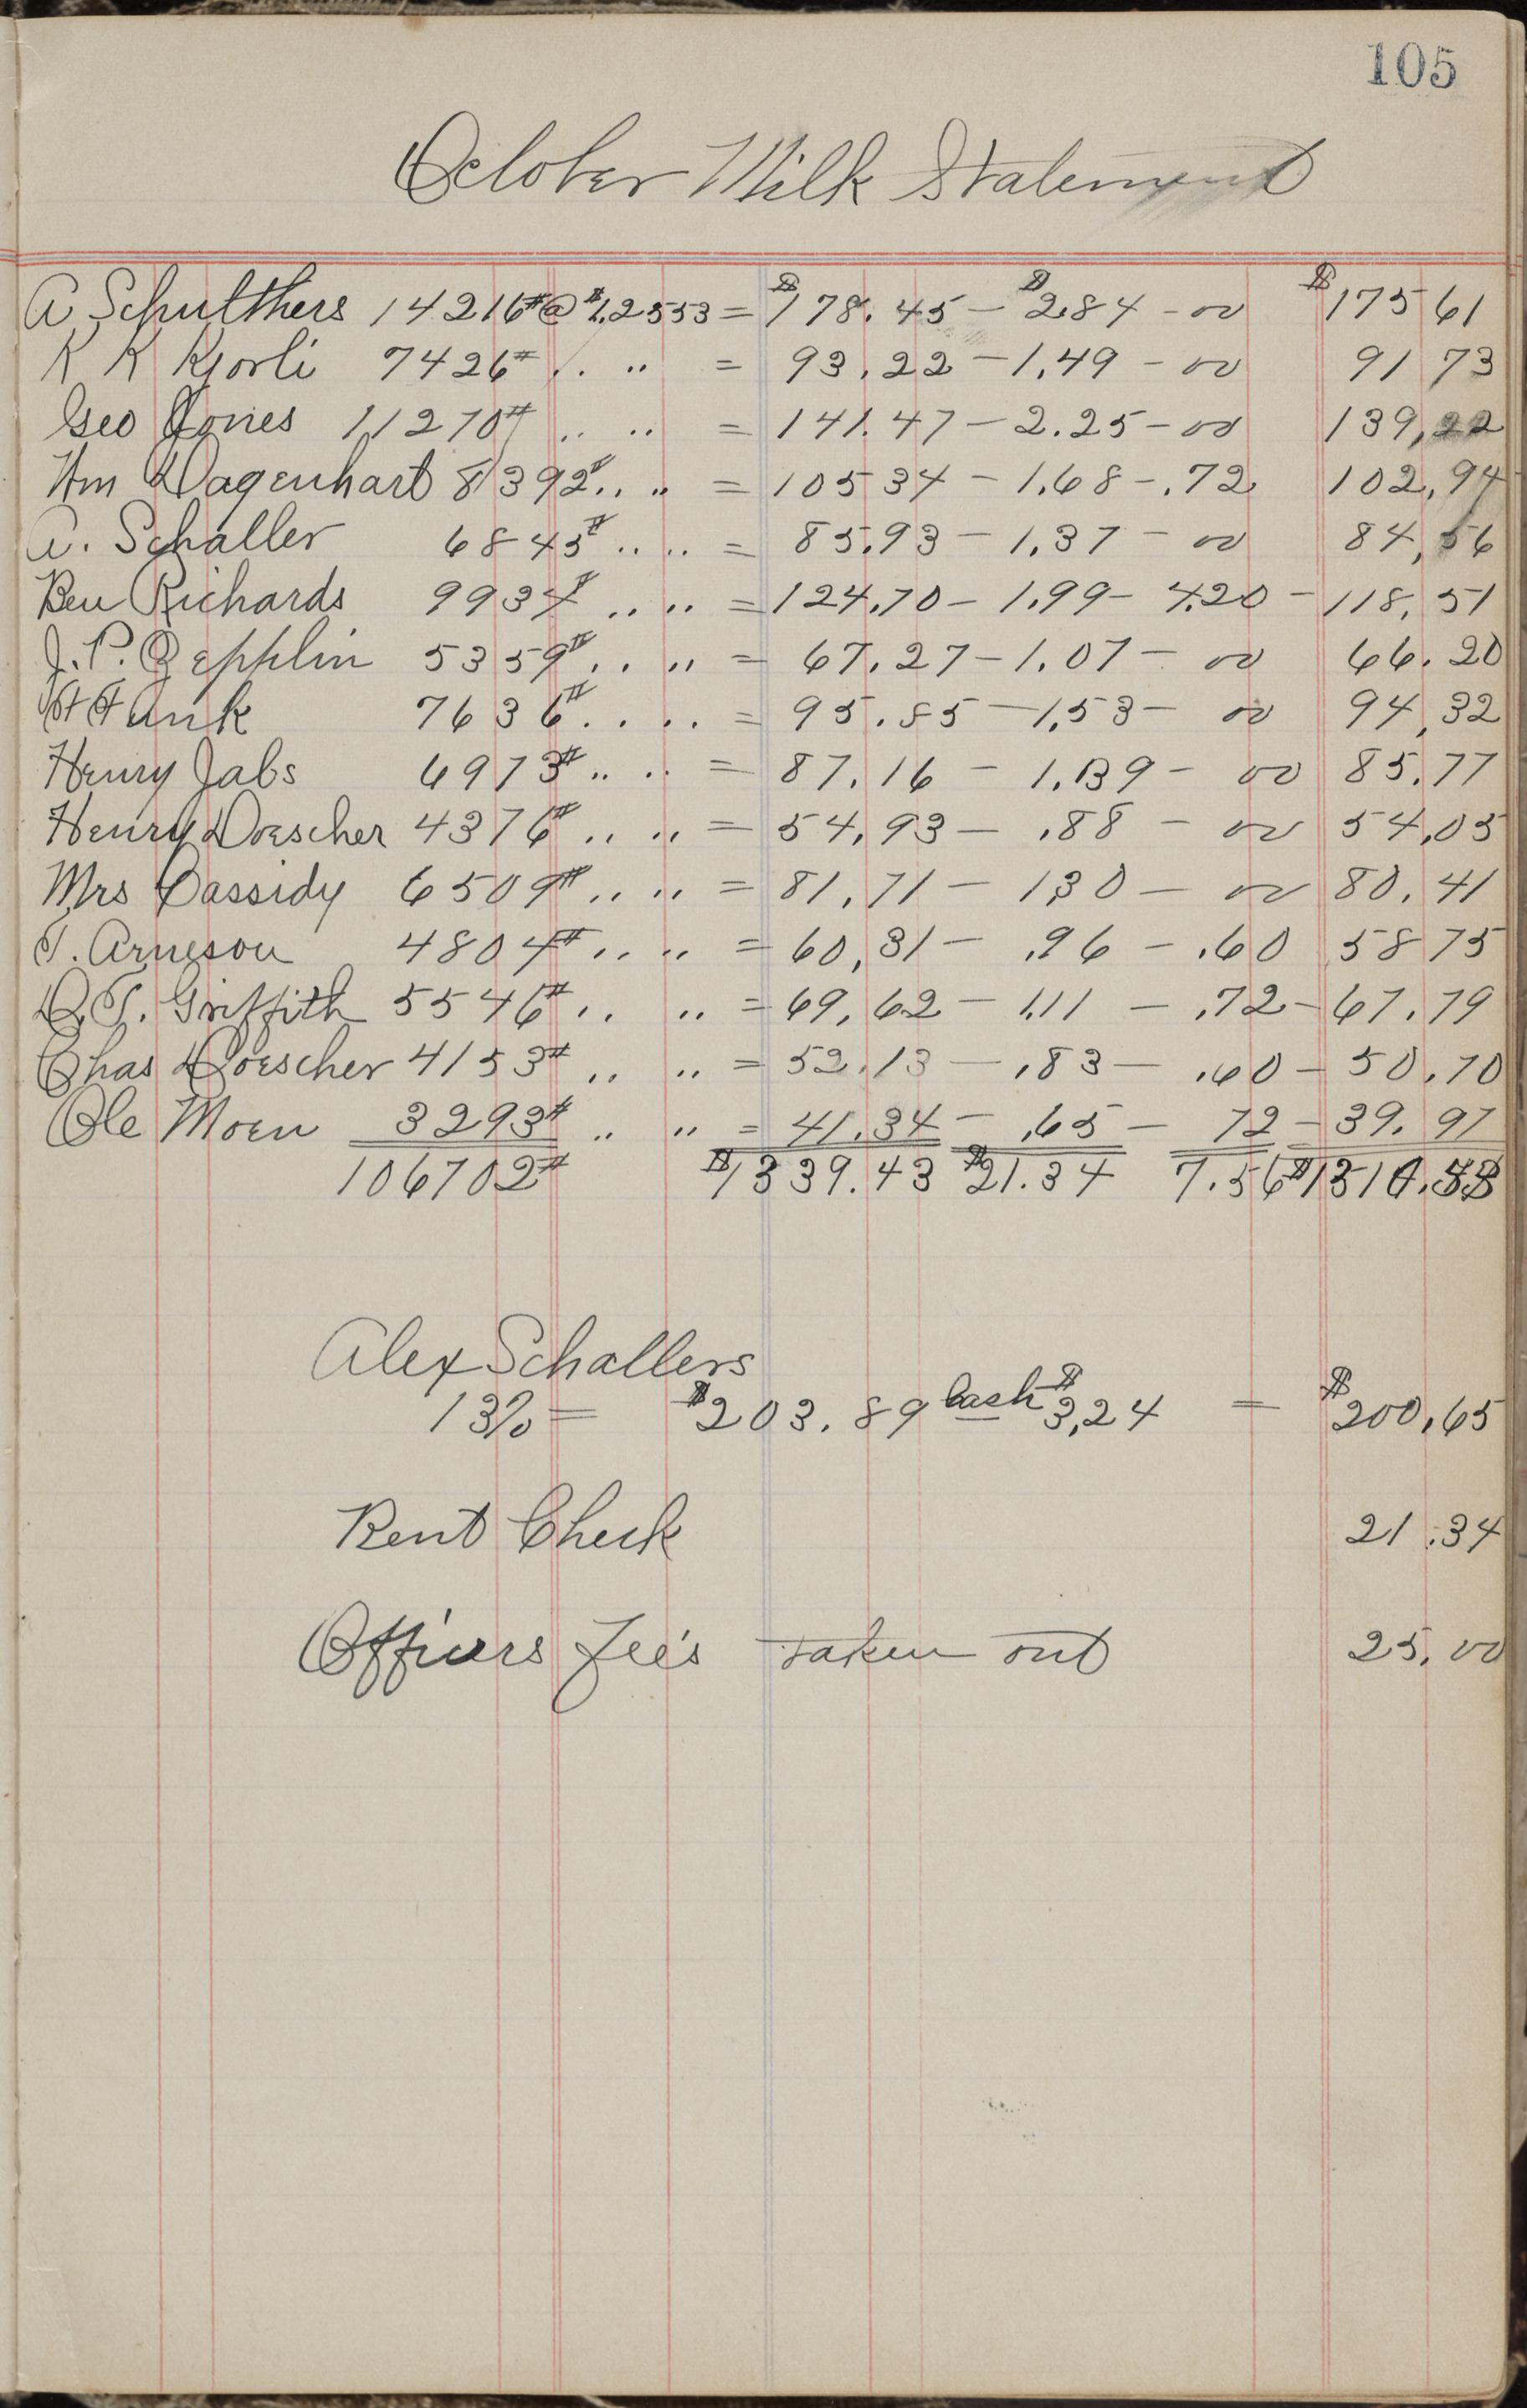 105
October Milk Statement
A Schulthers 14216# @ $1.2553 = $178.45 - $2.84 - 00 $175 61
K K Kjorli 7426# .. .. = 93.22 - 1.49 - 00 91 73
Geo Jones 11270# .. .. = 141.47 - 2.25 - 00 139,22
Wm Wagenhart 8392# .. .. = 105 34 - 1.68 - .72 102,94
A. Schaller 6845# .. .. = 85.93 - 1.37 - 00 84,56
Ben Richards 9934# .. .. = 124.70 - 1.99 - 4.20 - 118,51
J. P. Zepplin 5359# .. .. = 67.27 - 1.07 - 00 66.20
H Funk 7636# .. .. = 95.85 - 1.53 - 00 94,32
Henry Jabs 6973# .. .. = 87.16 - 1.39 - 00 85.77
Henry Doescher 4376# .. .. = 54,93 - .88 - 00 54,05
Mrs Cassidy 6509# .. .. = 81,71 - 1.30 - 00 80,41
T. Arneson 4804# .. .. = 60,31 - .96 - .60 58 75
D. T. Griffith 5546# .. .. = 69,62 - 1.11 - .72 - 67.79
Chas Doescher 4153# .. .. = 52.13 - .83 - .60 - 50,70
Ole Moen 3293# .. .. = 41.34 - .65 - 72 - 39.97
106702# $1339.43 $21.34 7.56
Alex Schallers
13% = $203.89 Cash $3,24 = $200,65
Rent Check 21.34
Officers Fee's taken out 25.00